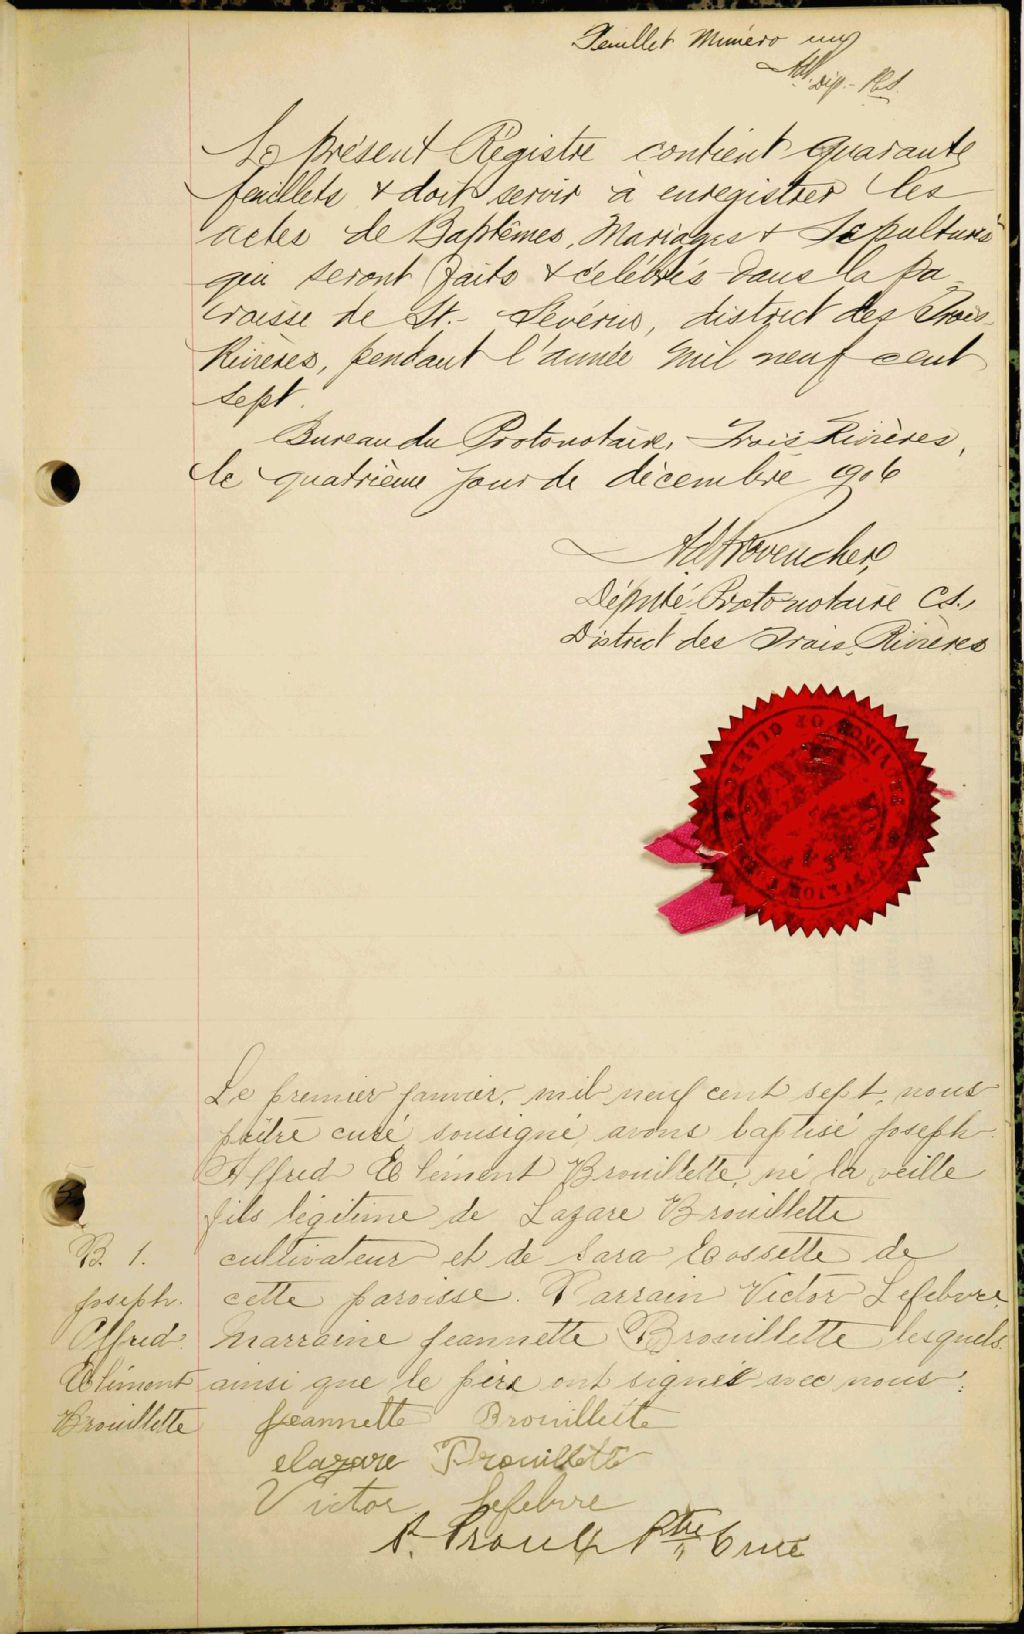 Feuillet Numéro un
Dép.- P.C.S.
Le présent Régistre contient quarante
feuillets & doit servir à enregistrer les
actes de Baptêmes, Mariages & Sépultures
qui seront faits & célébrés dans la pa-
roisse de St.- Séverin, district des Trois-
Rivières, pendant l'année mil neuf cent
sept.
Bureau du Protonotaire, Trois Rivières,
le quatrième jour de décembre 1906
Ad Provencher,
Député Protonotaire C.S.,
District des Trois Rivières
PROVINCE OF
Le premier janvier, mil neuf cent sept, nous
prêtre curé, sousigné, avons baptisé Joseph
Alfred Clément Brouillette, né la veille
fils légitime de Lazare Brouillette
cultivateur et de Sara Cossette de
cette paroisse. Parrain Victor Lefebvre,
Marraine Jeannette Brouillette lesquels
ainsi que le père ont signés avec nous:
B. 1.
Joseph.
Alfred
Clément
Brouillette
Jeannette Brouillette
elazare Brouillette
Victor Lefebvre
P. Proulx Ptre Curé